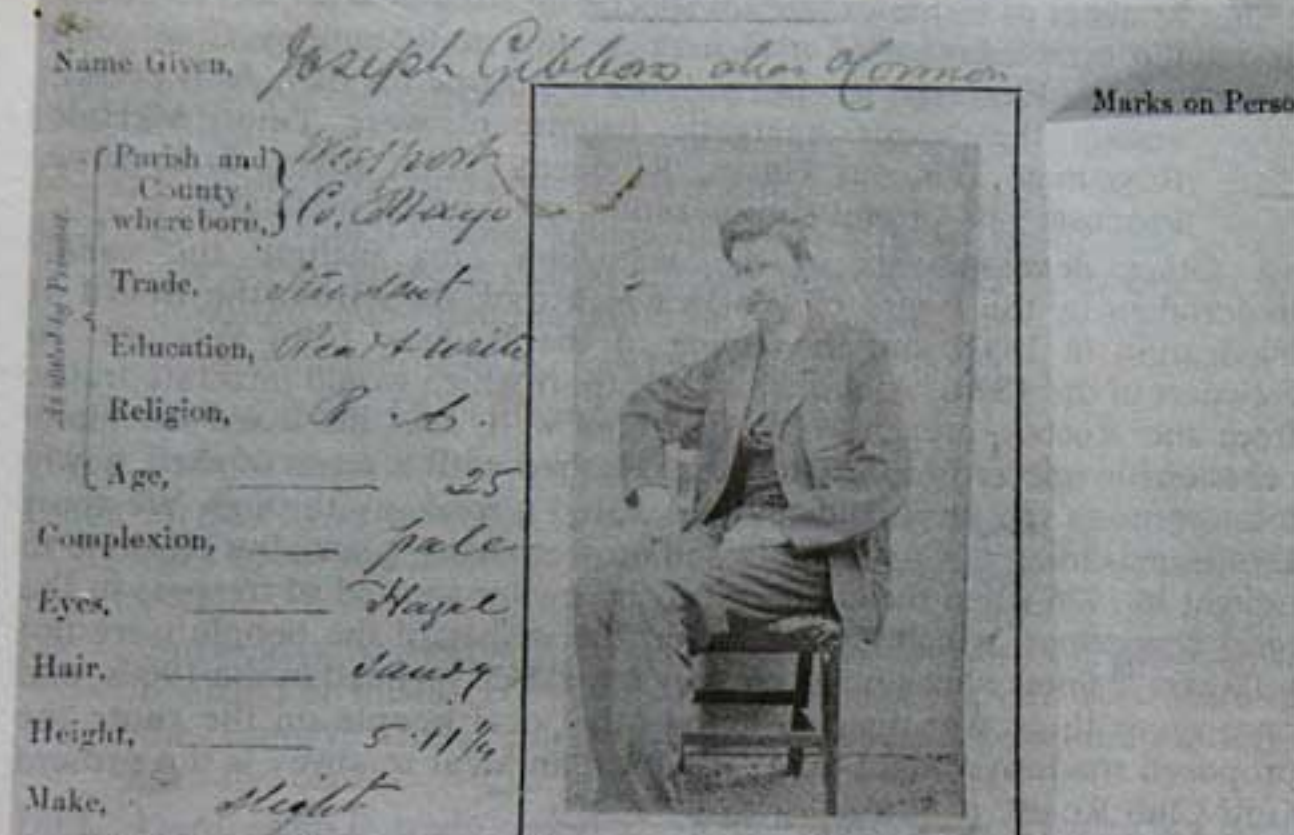 Name Given, Joseph Gibbons alias O'Connor
Marks on Perso
As stated by Prisoner.
Parish and County, where born, Westport Co. Mayo
Trade, Student
Education, Read & write
Religion, R. C.
Age, 25
Complexion, pale
Eyes, Hazel
Hair, sandy
Height, 5.11 1/4
Make, slight